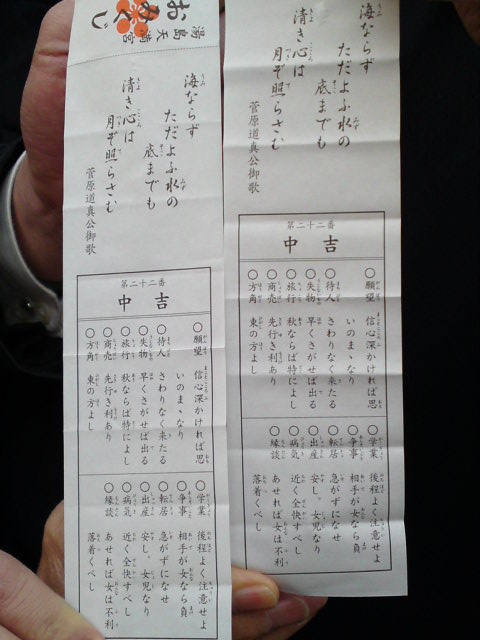 海ならず
ただよふ水の
底までも
清き心は
月ぞ照らさむ
菅原道真公御歌
第二十二番
中吉
○願望 信心深かければ思
いのまゝなり
○待人 さわりなく来たる
○失物 早くさがせば出る
○旅行 秋ならば特によし
○商売 先行き利あり
○方角 東の方よし
○学業 後程よく注意せよ
○争事 相手が女なら負
○転居 急がずになせ
○出産 安し。女児なり
○病気 近く全快すべし
○縁談 あせれば女は不利
落着くべし
湯島天満宮
おみくじ
海ならず
ただよふ水の
底までも
清き心は
月ぞ照らさむ
菅原道真公御歌
第二十二番
中吉
○願望 信心深かければ思
いのまゝなり
○待人 さわりなく来たる
○失物 早くさがせば出る
○旅行 秋ならば特によし
○商売 先行き利あり
○方角 東の方よし
○学業 後程よく注意せよ
○争事 相手が女なら負
○転居 急がずになせ
○出産 安し。女児なり
○病気 近く全快すべし
○縁談 あせれば女は不利
落着くべし